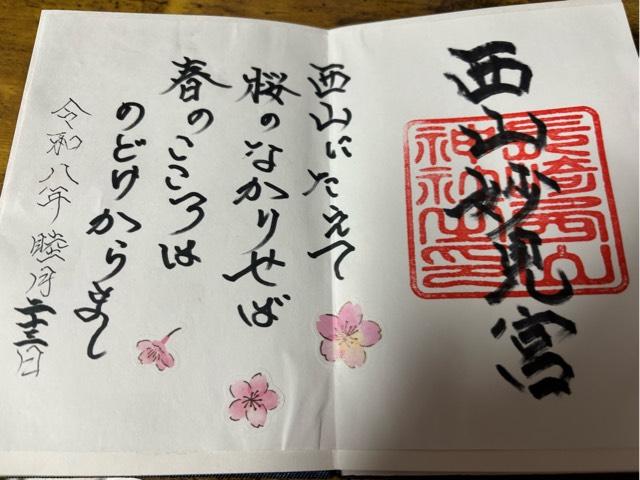 西山妙見宮
長崎西山神社之印
西山にたえて
桜のなかりせば
春のこころは
のどけからまし
令和八年睦月二十三日